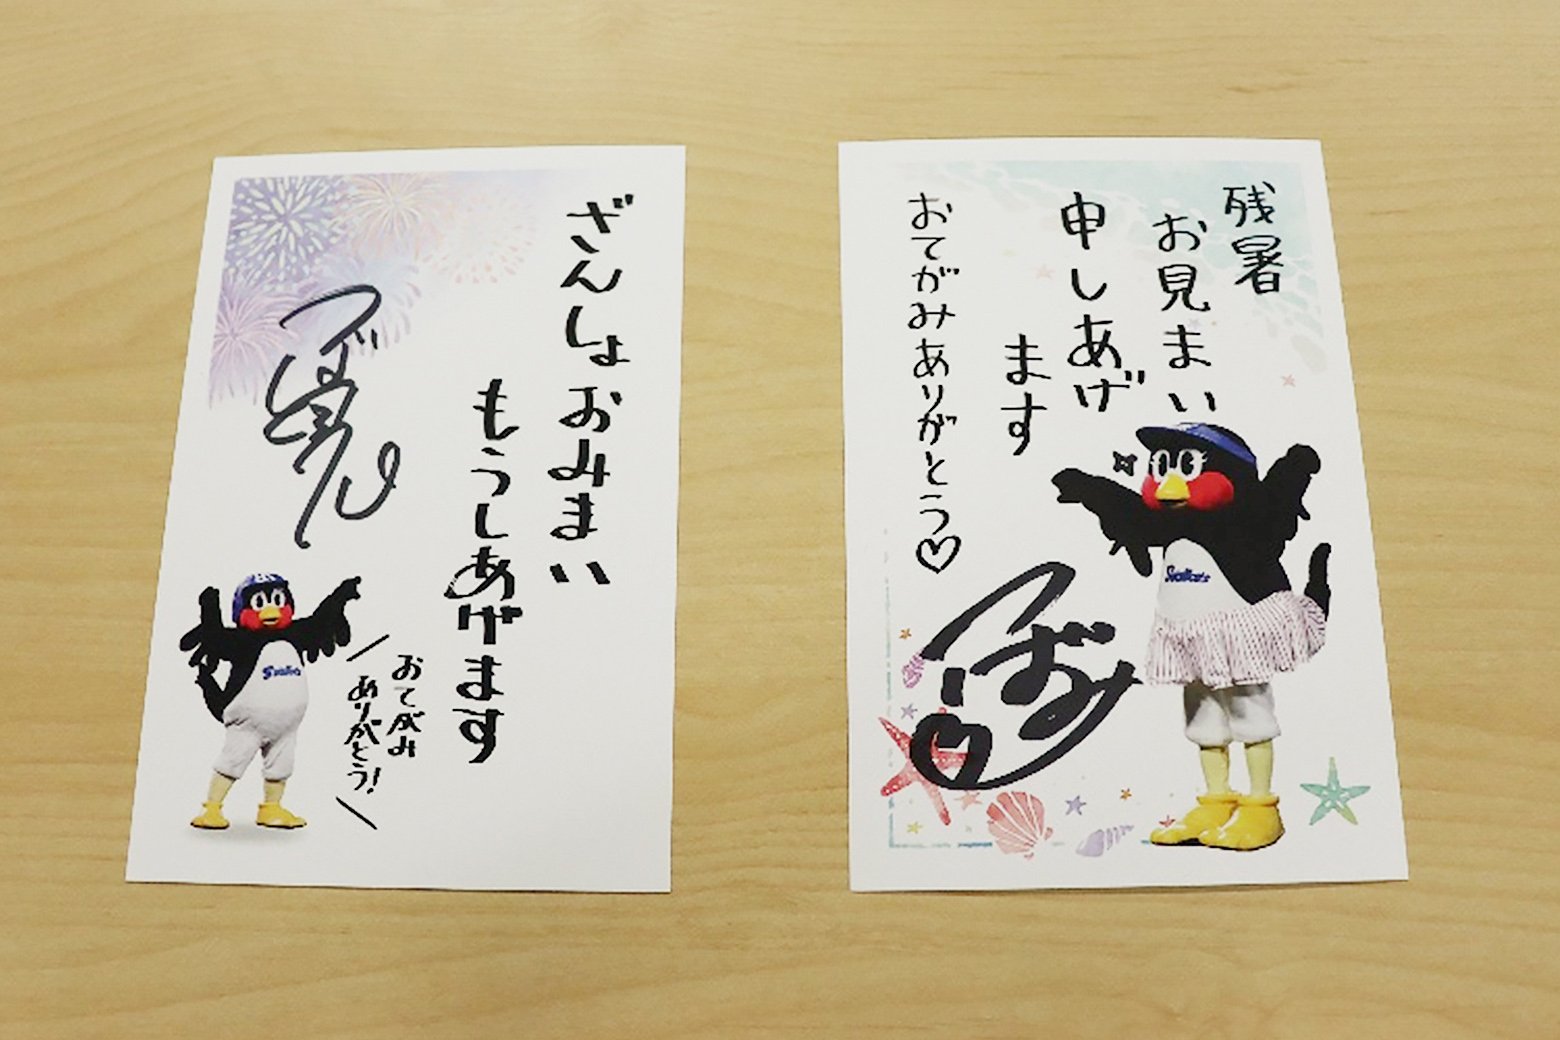 ざんしょおみまい
もうしあげます
おてがみ
ありがとう!
つば九郎
Swallows
残暑
お見まい
申しあげ
ます
おてがみありがとう♡
つばみ
Swallows